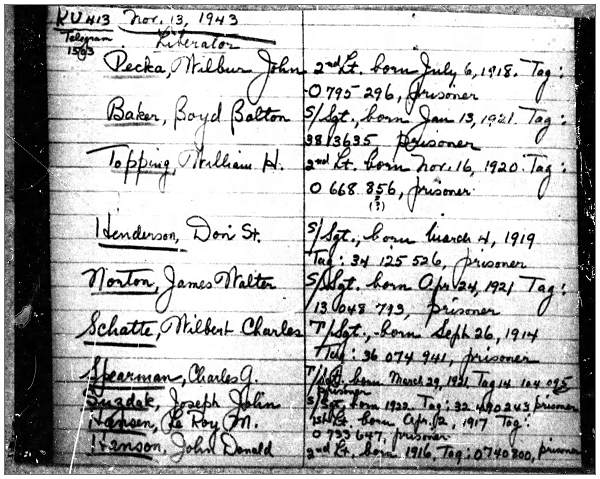 KU 413 Nov. 13, 1943
Telegram Liberator
1563
Pecka, Wilbur John 2nd Lt. born July 6, 1918. Tag:
0 795 296, prisoner
Baker, Boyd Balton S/Sgt., born Jan 13, 1921. Tag:
3813635, prisoner
Topping, William H. 2nd Lt. born Nov. 16, 1920 Tag:
0 668 856, prisoner
(?)
Henderson, Don St. S/Sgt., born March 4, 1919
Tag: 34 125 526, prisoner
Norton, James Walter S/Sgt. born Apr 24, 1921 Tag:
13 048 793, prisoner
Schatte, Wilbert Charles T/Sgt., born Sept 26, 1914
Tag: 36 074 941, prisoner
Spearman, Charles G. T/Sgt. born March 29, 1921 Tag 14 104 095
prisoner
Suzdak, Joseph John S/Sgt. born 1922 Tag: 32 490243 prisoner
Hansen, Le Roy M. 1st Lt. born Apr. 12, 1917 Tag:
0 733647, prisoner
Hanson, John Donald 2nd Lt. born 1916, Tag: 0740800, prisoner